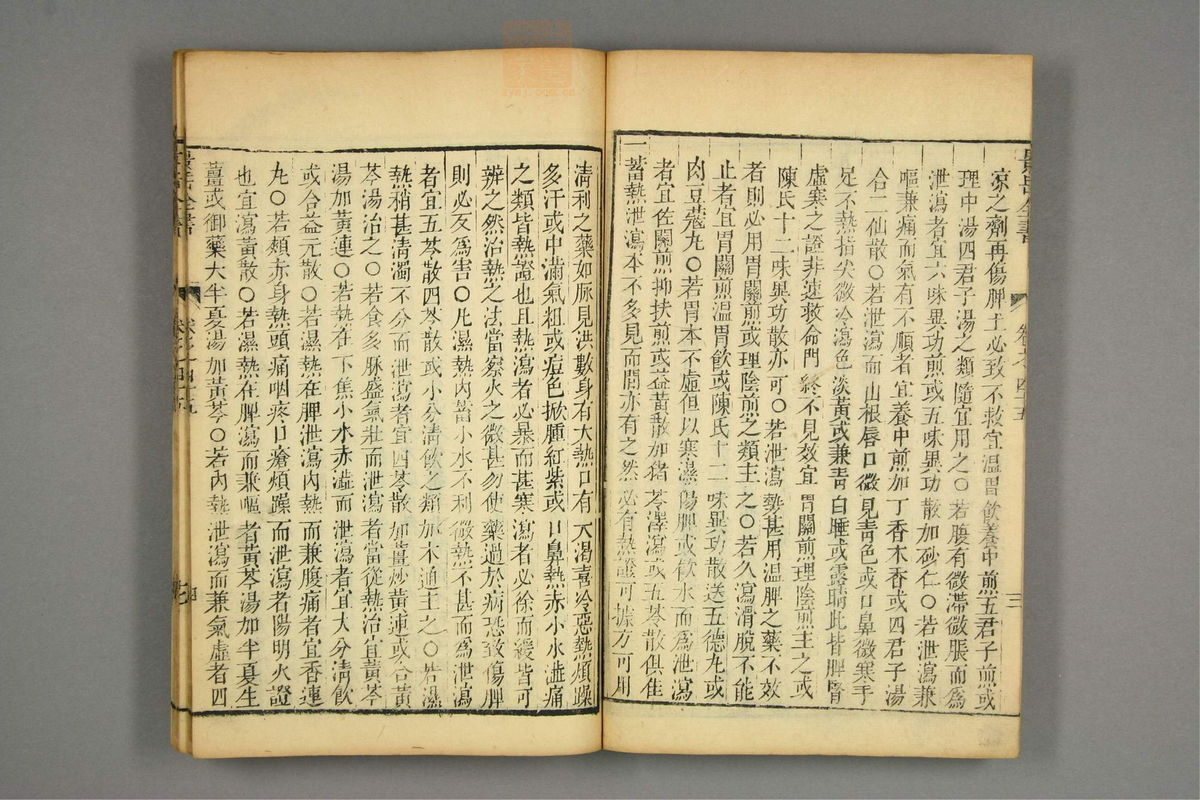 涼之劑再傷脾土必致不救宜溫胃飲養中煎五君子煎或
理中湯四君子湯之類隨宜用之〇若腹有微滯微脹而為
泄瀉者宜六味異功煎或五味異功散加砂仁〇若泄瀉兼
嘔兼痛而氣有不順者宜養中煎加丁香木香或四君子湯
合二仙散〇若泄瀉而山根唇口微見青色或口鼻微寒手
足不熱指尖微冷瀉色淡黃或兼青白睡或露睛此皆脾腎
虛寒之證非速救命門終不見效宜胃關煎理陰煎主之或
陳氏十二味異功散亦可〇若泄瀉勢甚用溫脾之藥不效
者則必用胃關煎或理陰煎之類主之〇若久瀉滑脫不能
止者宜胃關煎溫胃飲或陳氏十二味異功散送五德丸或
肉豆蔻丸〇若胃本不虛但以寒濕傷脾或飲水而為泄瀉
者宜佐關煎抑扶煎或益黃散加豬苓澤瀉或五苓散俱佳
一蓄熱泄瀉本不多見而間亦有之然必有熱證可據方可用
景岳全書
卷之四十五
三
清利之藥如脈見洪數身有大熱口有大渴喜冷惡熱煩躁
多汗或中滿氣粗或痘色掀腫紅紫或口鼻熱赤小水澁痛
之類皆熱證也且熱瀉者必暴而甚寒瀉者必徐而緩皆可
辨之然治熱之法當察火之微甚勿使藥過於病恐致傷脾
則必反為害〇凡濕熱內蓄小水不利微熱不甚而為泄瀉
者宜五苓散四苓散或小分清飲之類加木通主之〇若濕
熱稍甚清濁不分而泄瀉者宜四苓散加薑炒黃連或合黃
芩湯治之〇若食多脈盛氣壯而泄瀉者當從熱治宜黃芩
湯加黃連〇若熱在下焦小水赤澁而泄瀉者宜大分清飲
或合益元散〇若濕熱在脾泄瀉內熱而兼腹痛者宜香連
丸〇若頰赤身熱頭痛咽疼口瘡煩躁而泄瀉者陽明火證
也宜瀉黃散〇若濕熱在脾瀉而兼嘔者黃芩湯加半夏生
薑或御藥大半夏湯加黃芩〇若內熱泄瀉而兼氣虛者四